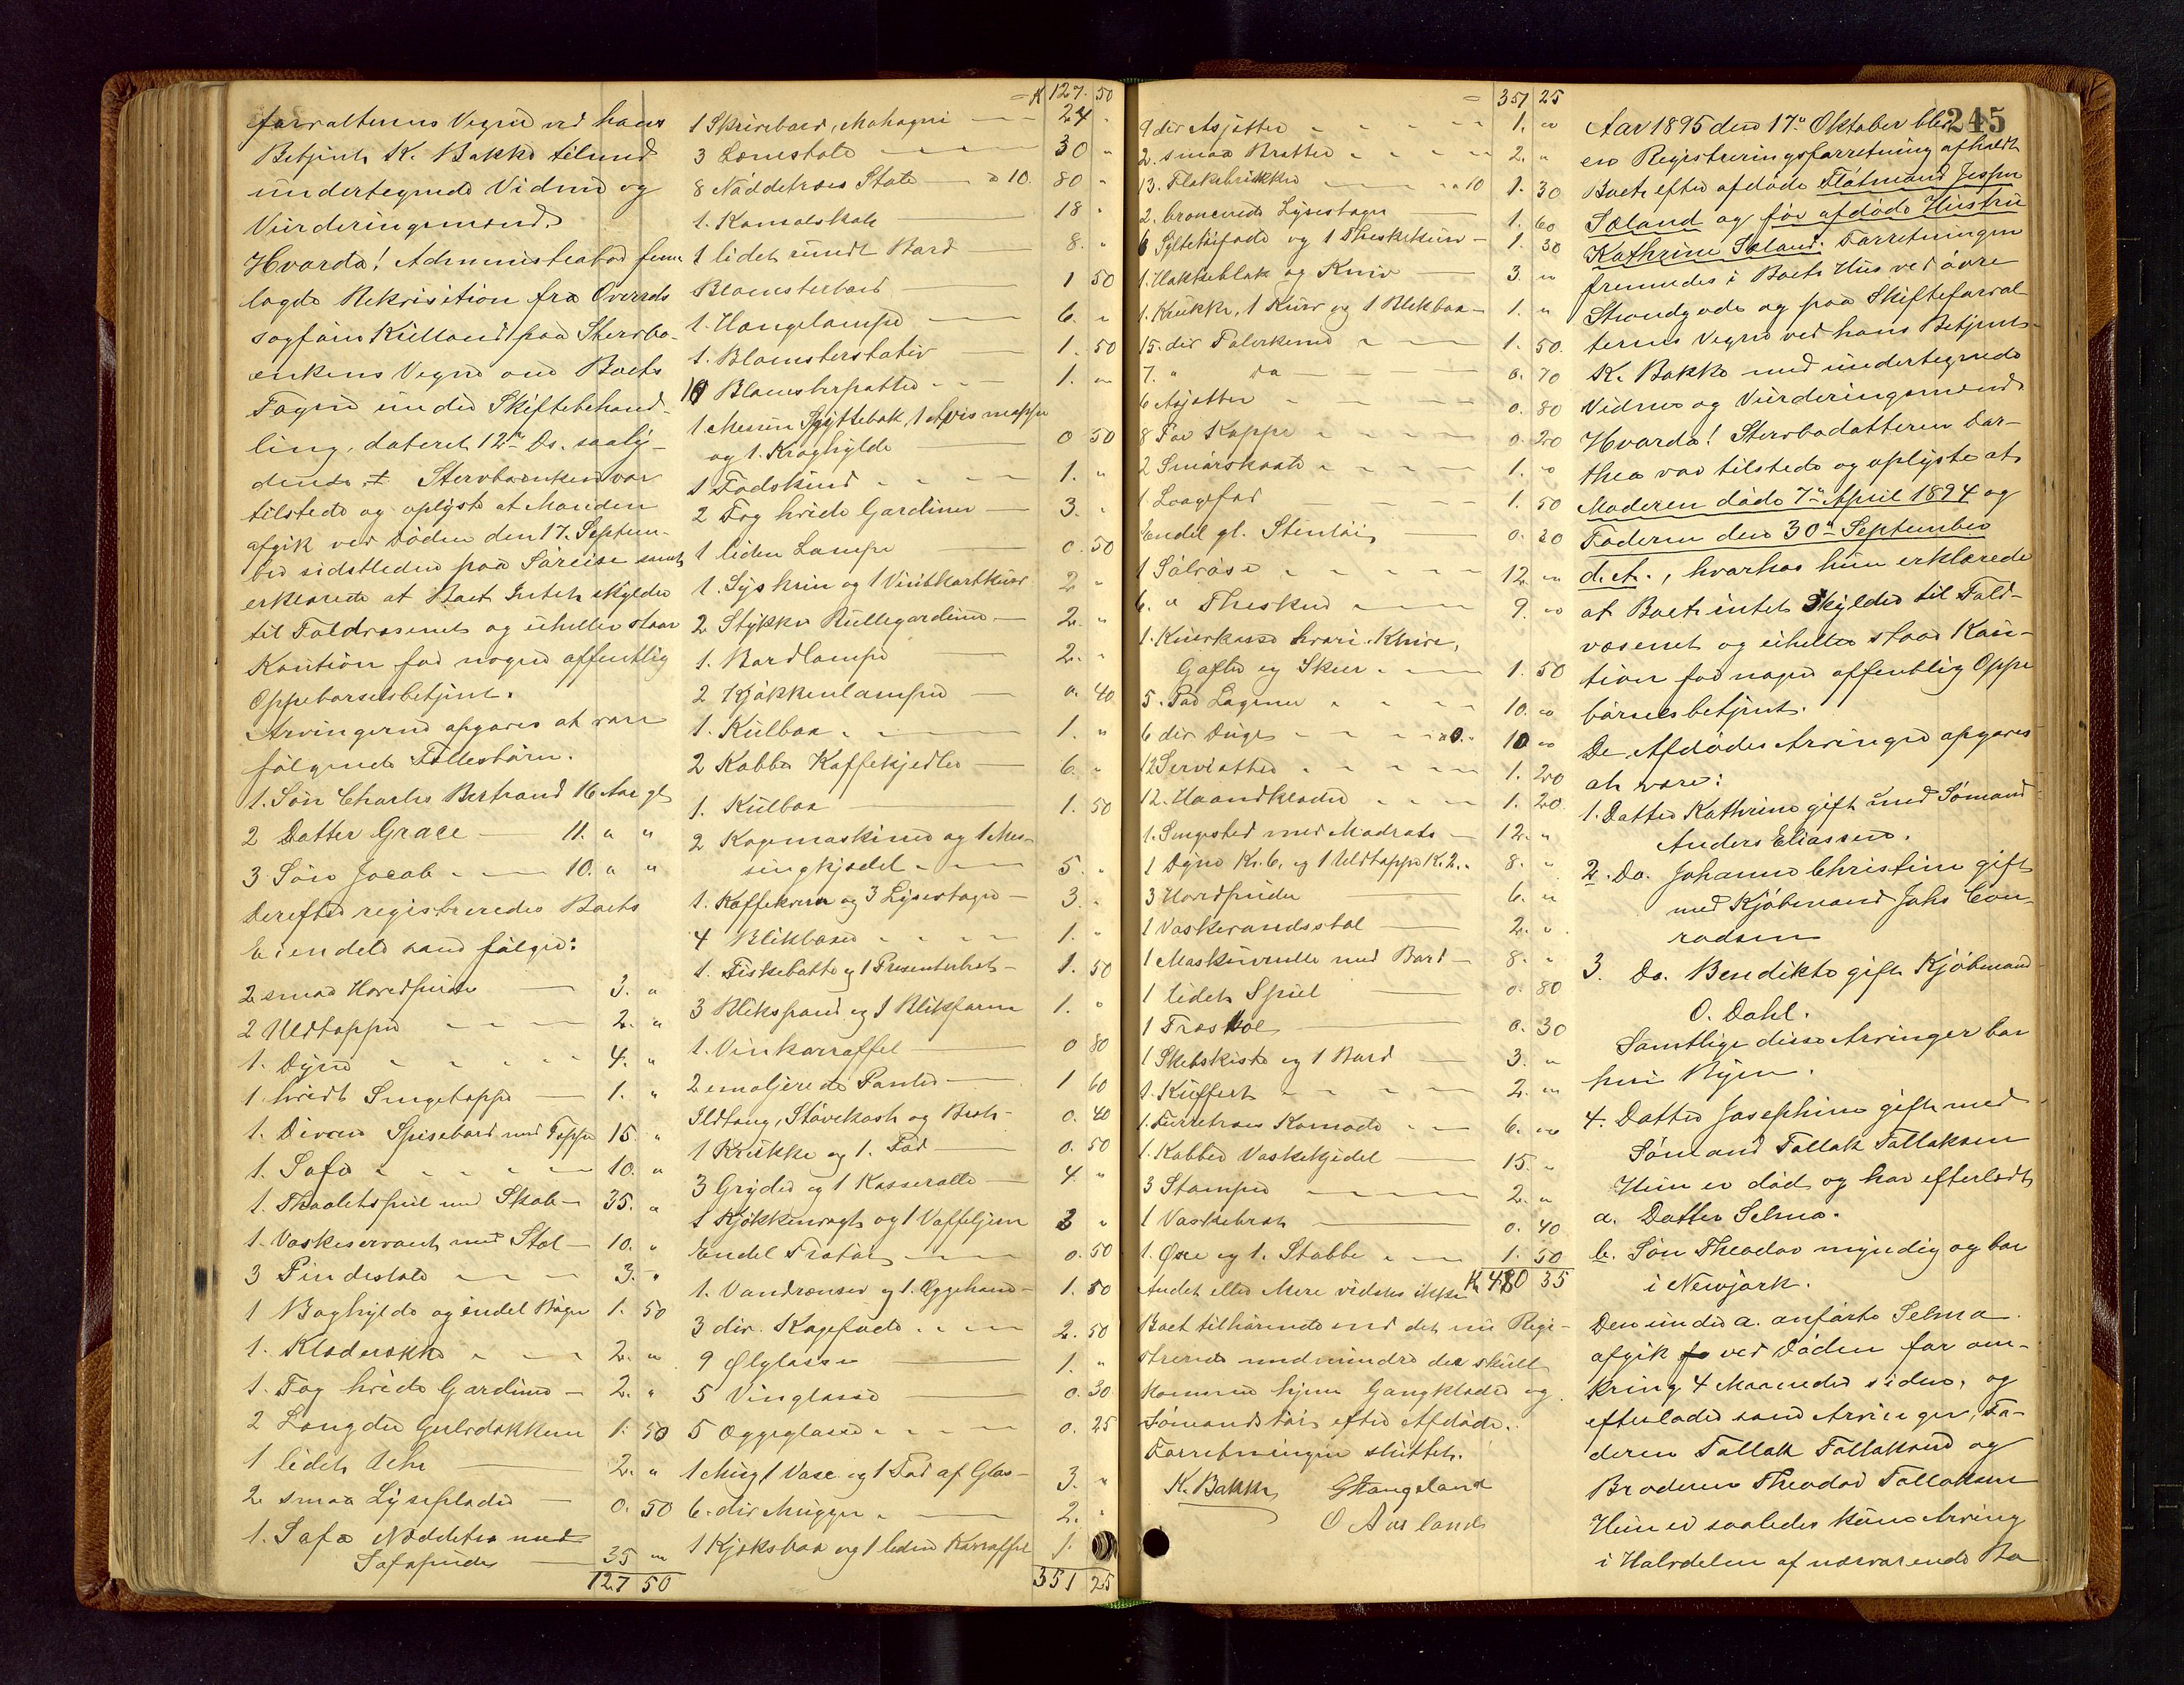 forvalterens Vegne ved hans
Betjent K. Bakke tilmed
undertegnede Vidner og
Vurderingsmænd.
Hvorda! Administrator frem
lagde Rekvisition fra Overrets
sagfører Kielland paa Stervbo-
enkens Vegne om Boets
Tagen under Skiftebehand-
ling, dateret 12te Ds. saaly-
dende. Stervboenken var
tilstede og oplyste at Manden
afgik ved Døden den 17. Septem-
ber sidstleden paa Søreise samt
erklærede at Boet Intet skylder
til Toldvæsenet og iheller staar
Kaution for nogen offentlig
Oppebørselsbetjent.
Arvingerne opgaves at være
følgende Fællesbørn.
1. Søn Charles Bertrand 16 Aar gl.
2 Datter Grace — 11. " "
3 Søn Jacob — 10. " "
Derefter registreredes Boets
Eiendele som følger:
2 smaa Hovedpuder 3. "
2 Uldtæpper 2. "
1. Dyne 4. "
1 hvidt Sengetæppe 1. "
1. Divan Spisebord med Tæppe 15. "
1. Sofa 10. "
1. Thoiletspeil med Skab 35. "
1. Vaskeservant med Stol 10. "
3 Pindestole 3. "
1 Boghylde og endel Bøger 1. 50
1. Klæderække 2. "
1. Fag hvide Gardiner 2. "
2 Længder Gulvdækken 1. 50
1 lidet Uhr 2. "
2 smaa Lyseplader 0. 50
1. Sofa Nøddetræ med
Sofapude 35 "
127 50
= K 127. 50
1 Skrivebord, Mahogni 24 "
3 Lænestole 30 "
8 Nøddetræs Stole a 10. 80 "
1. Kamelskab 18 "
1 lidet rundt Bord 8. "
Blomsterbord 1 50
1. Hængelampe 6. "
1. Blomsterstativ 1. 50
10 Blomsterpotter 1. "
1. Messin Spyttebak, 1 Avis mappe
og 1. Kroghylde 0 50
1 Fodskind 1. "
2 Fag hvide Gardiner 3. "
1 liden Lampe 0. 50
1. Syskrin og 1 Visitkortkurv 2 "
2 Stykker Rullegardiner 2. "
1. Bordlampe 2. "
2 Kjøkkenlamper 0. 40
1. Kulbox 1. "
2 Kobber Kaffekjedler 6. "
1. Kulbox 1. 50
2 Kogemaskiner og 1 Mes-
singkjedel 5. "
1. Kaffekvern og 3 Lysestager 3. "
4 Blikboxer 1. "
1. Fiskebøtte og 1 Presenterbret 1. 50
3 Blikspand og 1 Blikform 1. "
1. Vinkarraffel 0 80
2 emaljerede Pander 1 60
Ildtang, Støvekost og Bret 0. 40
1 Krukke og 1. Fad 0. 50
3 Gryder og 1 Kasserolle 4 "
1 Kjøkkenvægt og 1 Vaffeljern 3 "
Endel Trætøi 0. 50
1. Vandrenser og 1. Æggehand 1. 50
3 div. Kagefade 2. 50
9 Ølglasse 1. "
5 Vinglasse 0. 30
5 Æggeglasse 0. 25
1 Mug 1 Vase og 1 Fad af Glas 3. "
6. div Mugger 2. "
1 Kjeksbox og 1 liden Karraffel 1.
351 25
= 351 25
9 div Asjetter 1. "
2. smaa Bretter 2. "
13. Flakebrikker a 10 1. 30
2. broncerede Lysestager 1. 60
6 Syltetøifade og 1 Theskekurv 1. 30
1. Hakkeblok og Kniv 3. "
1. Krukke, 1 Kurv og 1 Blekbox 1. "
15. div Talerkener 1. 50.
7. " do 0. 70
6 Asjetter 0. 80
8 Par Kopper 0. 20
2 Smørskaale 1. "
1 Laagefad 1. 50
Endel gl. Stentøi 0. 20
1 Sølvøse 12. "
6. " Theskeer 9. "
1. Knivkasse hvori Knive,
Gafler og Skeer 1. 50
5. Par Lagener 10. "
6 div Duge 10 "
12 Servietter 1. 20
12. Haandklæder 1. 20.
1. Sengested med Madrats 12. "
1 Dyne Kr. 6. og 1 Uldtæppe K. 2. 8. "
3 Hovedpuder 6. "
1 Vaskevandsstol 2. "
1 Maskinrulle med Bord 8. "
1 lidet Speil 0. 80
1 Træstol 0. 30
1 Skibskiste og 1 Bord 3. "
1. Kuffert 2. "
1. Furretræs Komode 6. "
1. Kobber Vaskekjedel 15. "
3 Stamper 2. "
1 Vaskebret 0. 40
1. Øxe og 1. Stabbe 1. 50
K 480 35
Andet eller Mere vidstes ikke
Boet tilhørende end det nu Regi-
strerede medmindre der skulle
komme hjem Gangklæder og
Sømandstøi efter Afdøde.
Forretningen sluttet.
K. Bakke G Hangeland
O Aasland
245
Aar 1895 den 17de Oktober blev
en Registreringsforretning afholdt
Boet efter afdøde Flotmand Jesper
Sæland og før afdøde Hustru
Kathrine Sæland. Forretningen
fremmedes i Boets Hus ved øvre
Strandgade og paa Skifteforval-
terens Vegne ved hans Betjent
K. Bakke med undertegnede
Vidner og Vurderingsmænd.
Hvorda! Stervbodatteren Dor-
thea var tilstede og oplyste at
Moderen døde 7de April 1894 og
Faderen den 30te September
d. A., hvorhos hun erklærede
at Boet intet Skylder til Told-
væsenet og iheller staar Kau-
tion for nogen offentlig Oppe
børselsbetjent.
De Afdødes Arvinger opgaves
at være:
1. Datter Kathrine gift med Sømand
Anders Eliassen.
2. Do. Johanne Christine gift
med Kjøbmand Johs Con-
radsen
3. Do. Bendikte gift Kjøbmand
O. Dahl.
Samtlige disse Arvinger bor
her i Byen.
4. Datter Josephine gift med
Sømand Tallak Tallaksen
Hun er død og har efterladt
a. Datter Selma.
b. Søn Theodor myndig og bor
i Newjork.
Den under a. anførte Selma
afgik ved Døden for om-
kring 4 Maaneder siden, og
efterlader som Arvinger, Fa-
deren Tallak Tallaksen og
Broderen Theodor Tallaksen
Hun er saaledes kuns Arving
i Halvdelen af nærværende Bo